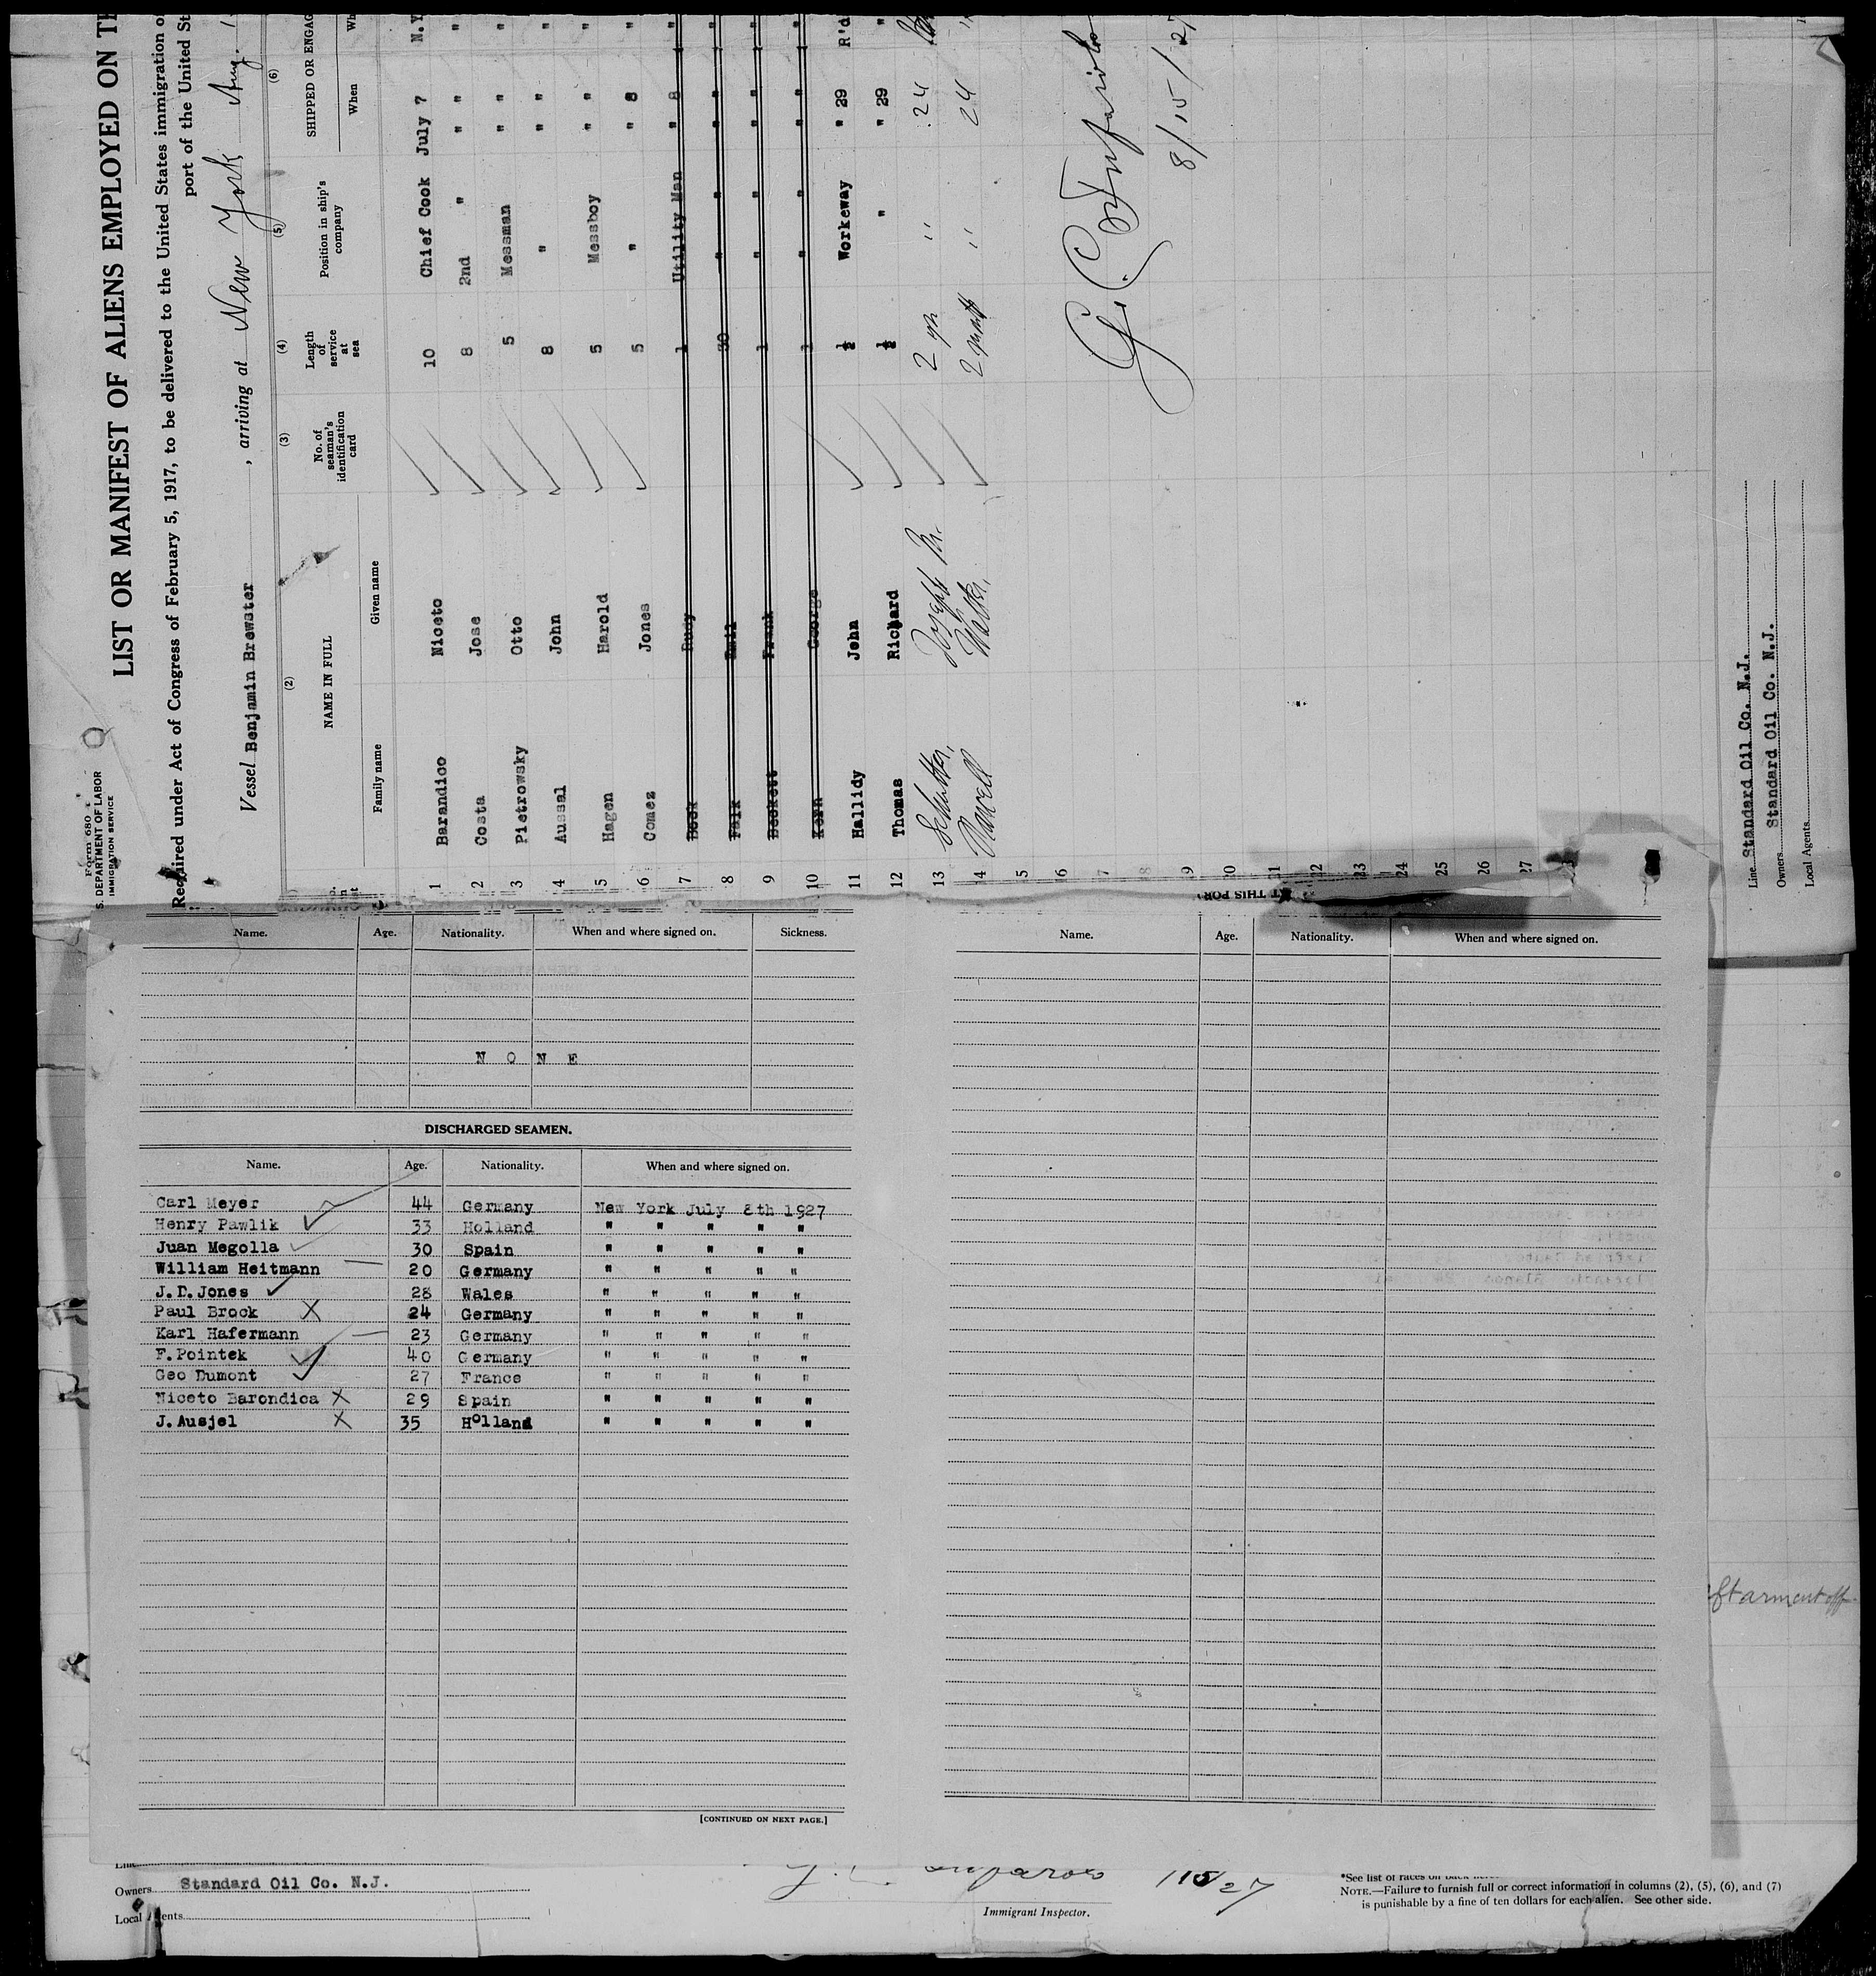 Form 680
S. DEPARTMENT OF LABOR
IMMIGRATION SERVICE
LIST OR MANIFEST OF ALIENS EMPLOYED ON
Required under Act of Congress of February 5, 1917, to be delivered to the United States immigration
port of the United
Vessel Benjamin Brewster, arriving at New York Aug.
(2) (3) (4) (5) (6)
NAME IN FULL
Family name Given name
No. of seaman's identification card
Length of service at sea
Position in ship's company
SHIPPED OR ENGAG
When
1 Barandico Niceto 10 Chief Cook July 7 N.Y
2 Costa Jose 8 2nd " " " "
3 Pietrowsky Otto 5 Messman " " "
4 Aussal John 8 " " " "
5 Hagen Harold 5 Messboy " " "
6 Comez Jones 5 " " 8 "
7 Beek Rudy 1 Utility Man " 8 "
8 Falk Emil 30 " " " " "
9 Beckett Frank 1 " " " " "
10 Kern George 1 " " " " "
11 Hallidy John 1/2 Workeway " 29 R'd
12 Thomas Richard 1/2 " " 29 "
13 Joseph 2 " 24
14 Walter 2 " 24 "
5
6
7
8
9
20
21
22
23
24
25
26
27
8/15/27
Line Standard Oil Co. N.J.
Owners Standard Oil Co. N.J.
Local Agents
AT THIS POR
Name. Age. Nationality. When and where signed on. Sickness.
NONE
DISCHARGED SEAMEN.
Name. Age. Nationality. When and where signed on.
Carl Meyer 44 Germany New York July 8th 1927
Henry Pawlik 33 Holland " " " " "
Juan Megolla 30 Spain " " " " "
William Heitmann 20 Germany " " " " "
J.D.Jones 28 Wales " " " " "
Paul Brock X 24 Germany " " " " "
Karl Hafermann 23 Germany " " " " "
F.Pointek 40 Germany " " " " "
Geo Dumont 27 France " " " " "
Niceto Barondica X 29 Spain " " " " "
J.Ausjel X 35 Holland " " " " "
[CONTINUED ON NEXT PAGE.]
Name. Age. Nationality. When and where signed on.
Owners Standard Oil Co. N.J.
Local Agents
Immigrant Inspector.
*See list of races on back
NOTE.—Failure to furnish full or correct information in columns (2), (5), (6), and (7)
is punishable by a fine of ten dollars for each alien. See other side.